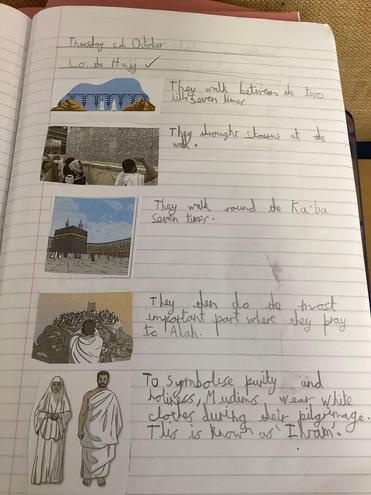 Thursday 5th October
L.o: the Hajj ✓
They walk between the two
hills seven times
They throught stowns at the
wall.
They walk round the Ka'ba
seven times.
They then do the most
important part where they pray
to Alah.
To symbolise purity and
holiness, Muslims wear white
clothes during their pilgrimage.
This is known as 'Ihram'.